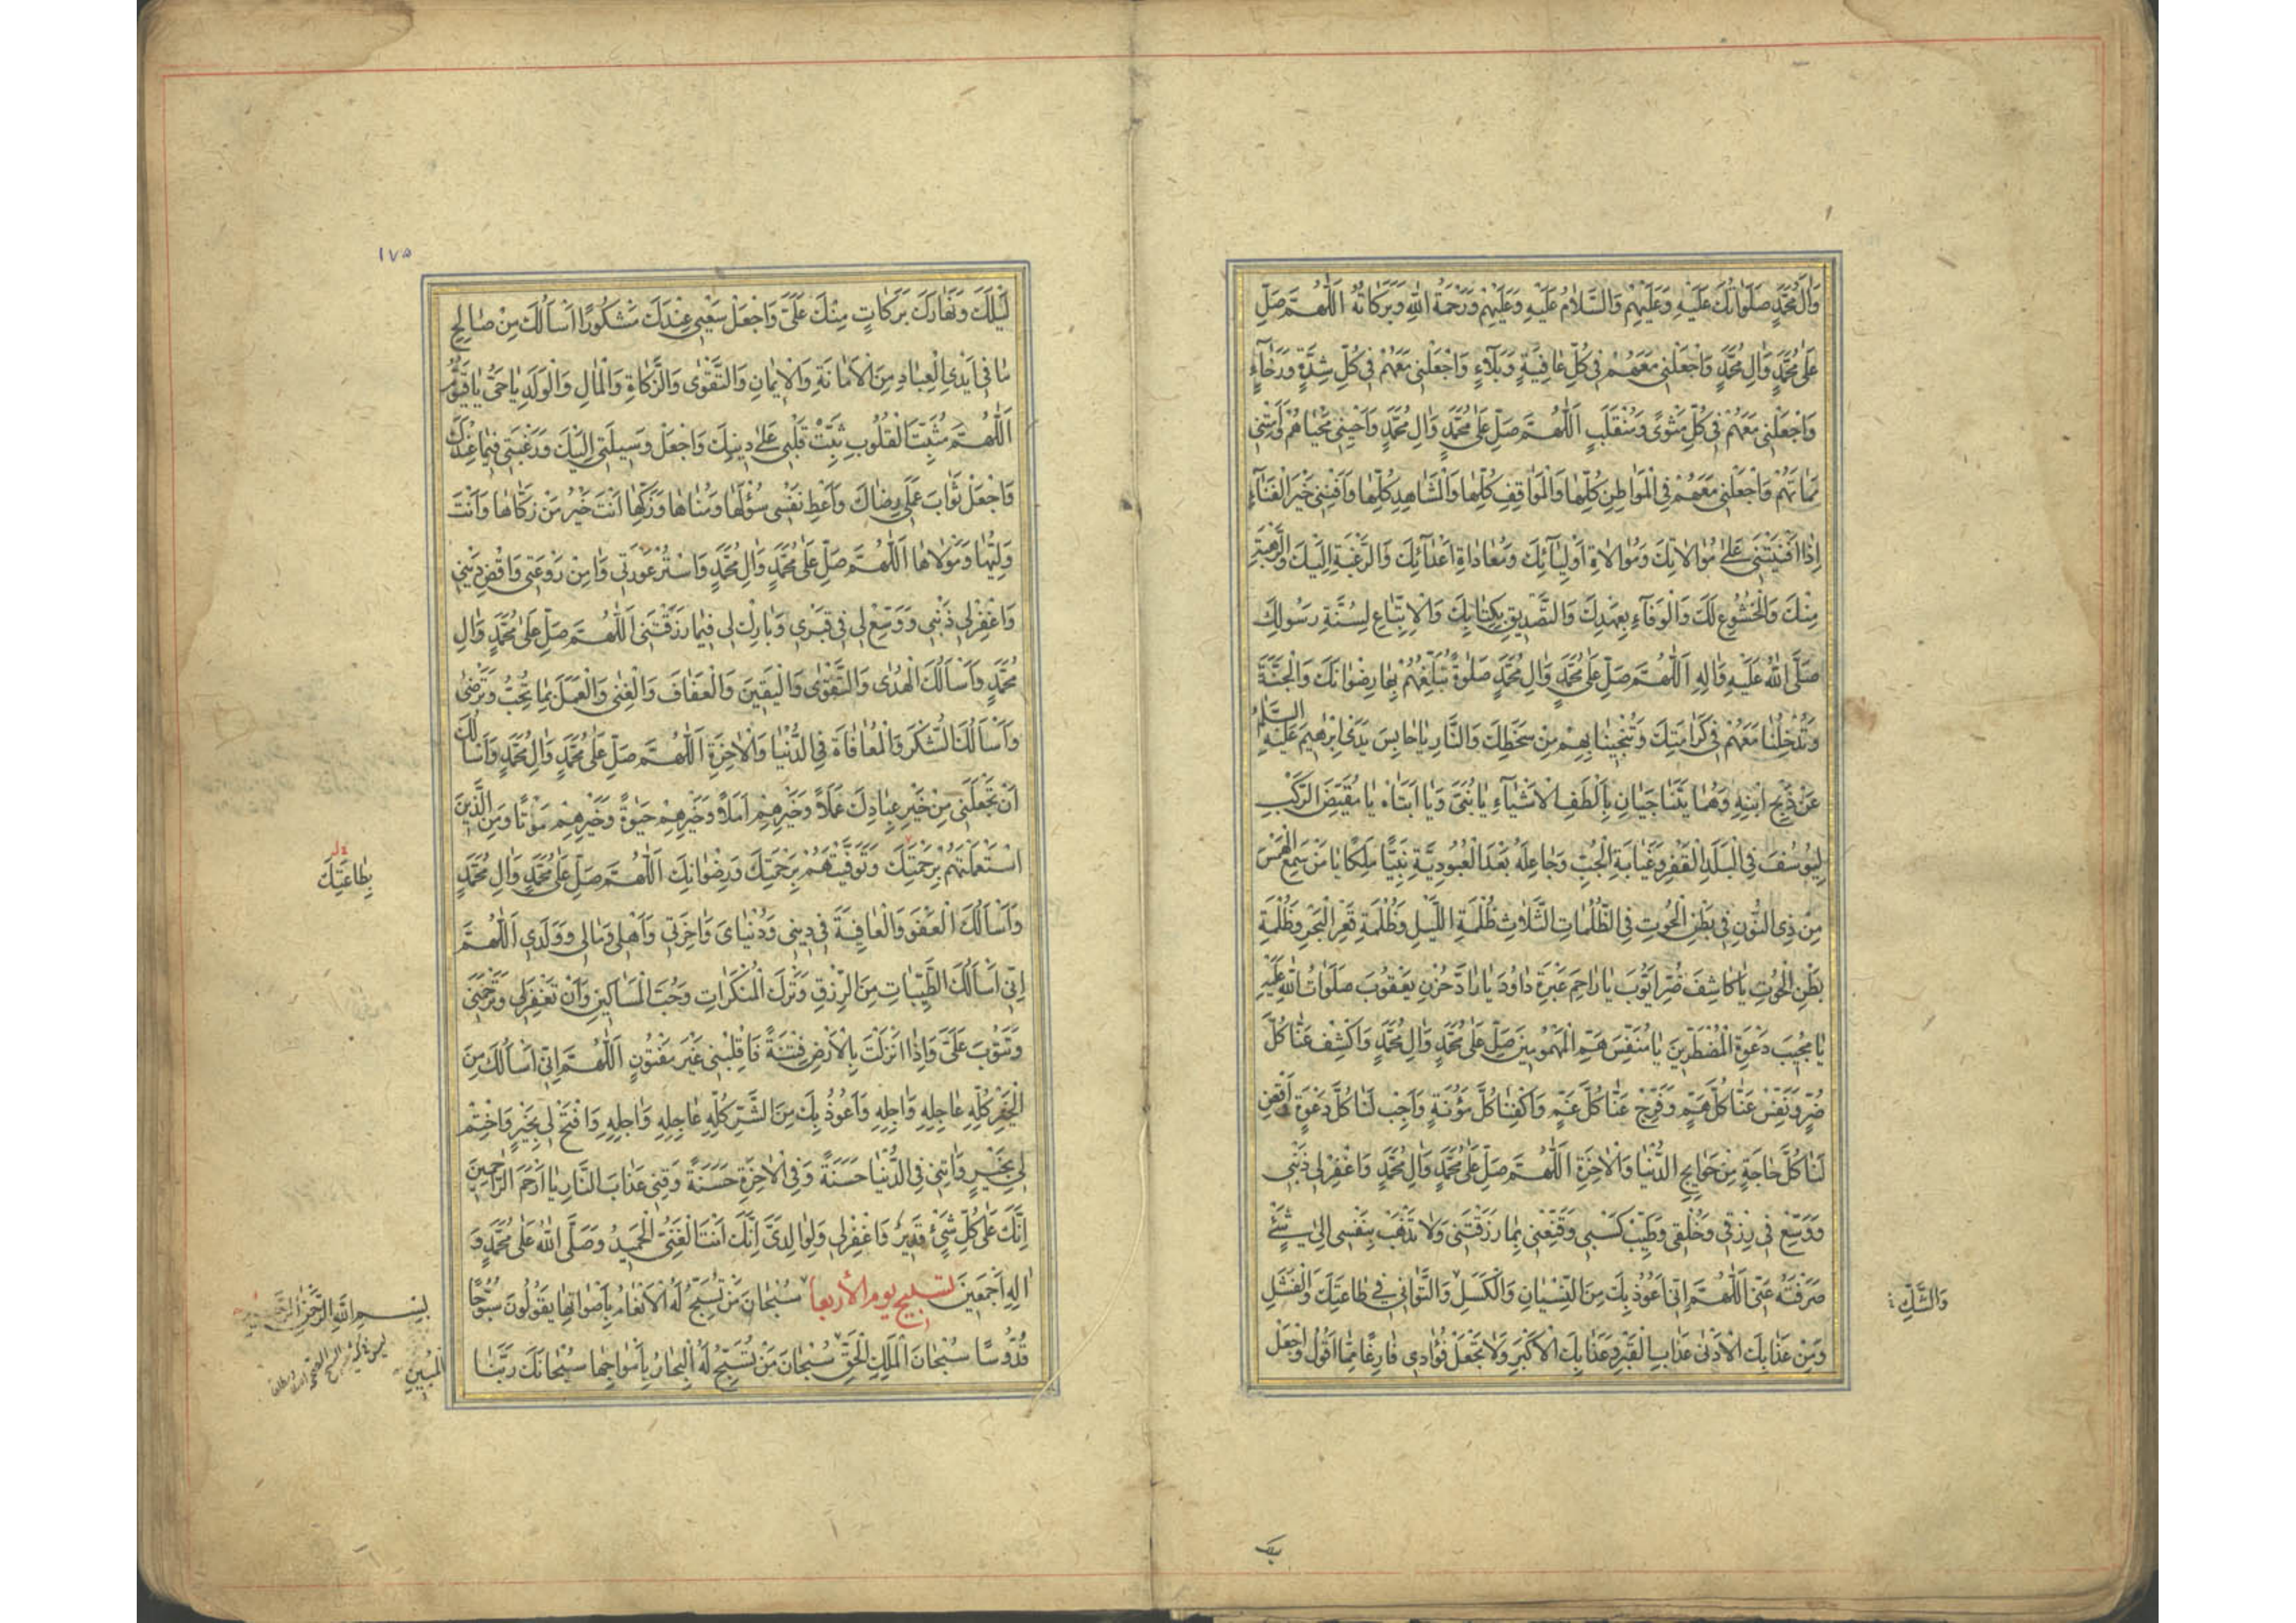 وَاٰلِ مُحَمَّدٍ صَلَوَاتُكَ عَلَيْهِ وَعَلَيْهِمْ وَالسَّلَامُ عَلَيْهِ وَعَلَيْهِمْ وَرَحْمَةُ اللهِ وَبَرَكَاتُهُ اَللّٰهُمَّ صَلِّ
عَلٰى مُحَمَّدٍ وَاٰلِ مُحَمَّدٍ وَاجْعَلْنِي مَعَهُمْ فِي كُلِّ عَافِيَةٍ وَبَلَاءٍ وَاجْعَلْنِي مَعَهُمْ فِي كُلِّ شِدَّةٍ وَرَخَاءٍ
وَاجْعَلْنِي مَعَهُمْ فِي كُلِّ مَثْوًى وَمُنْقَلَبٍ اَللّٰهُمَّ صَلِّ عَلٰى مُحَمَّدٍ وَاٰلِ مُحَمَّدٍ وَاَحْيِنِي مَحْيَاهُمْ وَاَمِتْنِي
مَمَاتَهُمْ وَاجْعَلْنِي مَعَهُمْ فِي الْمَوَاطِنِ كُلِّهَا وَالْمَوَاقِفِ كُلِّهَا وَالْمَشَاهِدِ كُلِّهَا وَاَفْنِنِي خَيْرَ الْفَنَاءِ
اِذَا اَفْنَيْتَنِي عَلٰى مُوَالَاتِكَ وَمُوَالَاةِ اَوْلِيَائِكَ وَمُعَادَاةِ اَعْدَائِكَ وَالرَّغْبَةِ اِلَيْكَ وَالرَّهْبَةِ
مِنْكَ وَالْخُشُوعِ لَكَ وَالْوَفَاءِ بِعَهْدِكَ وَالتَّصْدِيقِ بِكِتَابِكَ وَالْاِتِّبَاعِ لِسُنَّةِ رَسُولِكَ
صَلَّى اللهُ عَلَيْهِ وَاٰلِهِ اَللّٰهُمَّ صَلِّ عَلٰى مُحَمَّدٍ وَاٰلِ مُحَمَّدٍ صَلٰوةً تُبَلِّغُهُمْ بِهَا رِضْوَانَكَ وَالْجَنَّةَ
وَتُدْخِلُنَا مَعَهُمْ فِي كَرَامَتِكَ وَتُنْجِينَا بِهِمْ مِنْ سَخَطِكَ وَالنَّارِ يَا حَابِسَ يَدَيْ اِبْرٰهِيمَ عَلَيْهِ السَّلَمُ
عَنْ ذَبْحِ ابْنِهِ وَهُمَا يَتَنَاجَيَانِ بِاَلْطَفِ الْاَشْيَاءِ يَا بُنَيَّ وَيَا اَبَتَاهْ يَا مُقَيِّضَ الرَّكْبِ
لِيُوسُفَ فِي الْبَلَدِ الْقَفْرِ وَغَيَابَةِ الْجُبِّ وَجَاعِلَهُ بَعْدَ الْعُبُودِيَّةِ نَبِيًّا مَلِكًا يَا مَنْ سَمِعَ الْهَمْسَ
مِنْ ذِي النُّونِ فِي بَطْنِ الْحُوتِ فِي الظُّلُمَاتِ الثَّلَاثِ ظُلْمَةِ اللَّيْلِ وَظُلْمَةِ قَعْرِ الْبَحْرِ وَظُلْمَةِ
بَطْنِ الْحُوتِ يَا كَاشِفَ ضُرِّ اَيُّوبَ يَا رَاحِمَ عَبْرَةِ دَاوُدَ يَا رَادَّ حُزْنِ يَعْقُوبَ صَلَوَاتُ اللهِ عَلَيْهِمْ
يَا مُجِيبَ دَعْوَةِ الْمُضْطَرِّينَ يَا مُنَفِّسَ هَمِّ الْمَهْمُومِينَ صَلِّ عَلٰى مُحَمَّدٍ وَاٰلِ مُحَمَّدٍ وَاكْشِفْ عَنَّا كُلَّ
ضُرٍّ وَنَفِّسْ عَنَّا كُلَّ هَمٍّ وَفَرِّجْ عَنَّا كُلَّ غَمٍّ وَاكْفِنَا كُلَّ مَؤُنَةٍ وَاَجِبْ لَنَا كُلَّ دَعْوَةٍ وَاقْضِ
لَنَا كُلَّ حَاجَةٍ مِنْ حَوَايِجِ الدُّنْيَا وَالْاٰخِرَةِ اَللّٰهُمَّ صَلِّ عَلٰى مُحَمَّدٍ وَاٰلِ مُحَمَّدٍ وَاغْفِرْ لِي ذَنْبِي
وَوَسِّعْ فِي رِزْقِي وَخُلْقِي وَطَيِّبْ كَسْبِي وَقَنِّعْنِي بِمَا رَزَقْتَنِي وَلَا تَذْهَبْ بِنَفْسِي اِلٰى شَيْءٍ
صَرَفْتَهُ عَنِّي اَللّٰهُمَّ اِنِّي اَعُوذُ بِكَ مِنَ النِّسْيَانِ وَالْكَسَلِ وَالتَّوَانِي فِي طَاعَتِكَ وَالْفَشَلِ
وَالشَّكِّ
وَمِنْ عَذَابِكَ الْاَدْنٰى عَذَابِ الْقَبْرِ وَعَذَابِكَ الْاَكْبَرِ وَلَا تَجْعَلْ فُؤَادِي فَارِغًا مِمَّا اَقُولُ وَاجْعَلْ
١٧٥
لَيْلَكَ وَنَهَارَكَ بَرَكَاتٍ مِنْكَ عَلَيَّ وَاجْعَلْ سَعْيِي عِنْدَكَ مَشْكُورًا اَسْاَلُكَ مِنْ صَالِحِ
مَا فِي اَيْدِي الْعِبَادِ مِنَ الْاَمَانَةِ وَالْاِيمَانِ وَالتَّقْوٰى وَالزَّكَاةِ وَالْمَالِ وَالْوَلَدِ يَا حَيُّ يَا قَيُّومُ
اَللّٰهُمَّ مُثَبِّتَ الْقُلُوبِ ثَبِّتْ قَلْبِي عَلٰى دِينِكَ وَاجْعَلْ وَسِيلَتِي اِلَيْكَ وَرَغْبَتِي فِيمَا عِنْدَكَ
وَاجْعَلْ ثَوَابَ عَمَلِي رِضَاكَ وَاَعْطِ نَفْسِي سُؤْلَهَا وَمُنَاهَا وَزَكِّهَا اَنْتَ خَيْرُ مَنْ زَكَّاهَا وَاَنْتَ
وَلِيُّهَا وَمَوْلَاهَا اَللّٰهُمَّ صَلِّ عَلٰى مُحَمَّدٍ وَاٰلِ مُحَمَّدٍ وَاسْتُرْ عَوْرَتِي وَاٰمِنْ رَوْعَتِي وَاقْضِ دَيْنِي
وَاغْفِرْ لِي ذَنْبِي وَوَسِّعْ لِي فِي قَبْرِي وَبَارِكْ لِي فِيمَا رَزَقْتَنِي اَللّٰهُمَّ صَلِّ عَلٰى مُحَمَّدٍ وَاٰلِ
مُحَمَّدٍ وَاَسْاَلُكَ الْهُدٰى وَالتَّقْوٰى وَالْيَقِينَ وَالْعَفَافَ وَالْغِنٰى وَالْعَمَلَ بِمَا تُحِبُّ وَتَرْضٰى
وَاَسْاَلُكَ الشُّكْرَ وَالْمُعَافَاةَ فِي الدُّنْيَا وَالْاٰخِرَةِ اَللّٰهُمَّ صَلِّ عَلٰى مُحَمَّدٍ وَاٰلِ مُحَمَّدٍ وَاَسْاَلُكَ
اَنْ تَجْعَلَنِي مِنْ خَيْرِ عِبَادِكَ عَمَلًا وَخَيْرِهِمْ اَمَلًا وَخَيْرِهِمْ حَيٰوةً وَخَيْرِهِمْ مَوْتًا وَمِنَ الَّذِينَ
اسْتَعْمَلْتَهُمْ بِرَحْمَتِكَ وَتَوَفَّيْتَهُمْ بِرَحْمَتِكَ وَرِضْوَانِكَ اَللّٰهُمَّ صَلِّ عَلٰى مُحَمَّدٍ وَاٰلِ مُحَمَّدٍ
بِطَاعَتِكَ
وَاَسْاَلُكَ الْعَفْوَ وَالْعَافِيَةَ فِي دِينِي وَدُنْيَايَ وَاٰخِرَتِي وَاَهْلِي وَمَالِي وَوَلَدِي اَللّٰهُمَّ
اِنِّي اَسْاَلُكَ الطَّيِّبَاتِ مِنَ الرِّزْقِ وَتَرْكَ الْمُنْكَرَاتِ وَحُبَّ الْمَسَاكِينِ وَاَنْ تَغْفِرَ لِي وَتَرْحَمَنِي
وَتَتُوبَ عَلَيَّ وَاِذَا اَنْزَلْتَ بِالْاَرْضِ فِتْنَةً فَاقْلِبْنِي غَيْرَ مَفْتُونٍ اَللّٰهُمَّ اِنِّي اَسْاَلُكَ مِنَ
الْخَيْرِ كُلِّهِ عَاجِلِهِ وَاٰجِلِهِ وَاَعُوذُ بِكَ مِنَ الشَّرِّ كُلِّهِ عَاجِلِهِ وَاٰجِلِهِ وَافْتَحْ لِي بِخَيْرٍ وَاخْتِمْ
لِي بِخَيْرٍ وَاٰتِنِي فِي الدُّنْيَا حَسَنَةً وَفِي الْاٰخِرَةِ حَسَنَةً وَقِنِي عَذَابَ النَّارِ يَا اَرْحَمَ الرَّاحِمِينَ
اِنَّكَ عَلٰى كُلِّ شَيْءٍ قَدِيرٌ وَاغْفِرْ لِي وَلِوَالِدَيَّ اِنَّكَ اَنْتَ الْغَنِيُّ الْحَمِيدُ وَصَلَّى اللهُ عَلٰى مُحَمَّدٍ وَ
اٰلِهِ اَجْمَعِينَ تسبيح يوم الأربعا سُبْحَانَ مَنْ تُسَبِّحُ لَهُ الْاَنْعَامُ بِاَصْوَاتِهَا يَقُولُونَ سُبُّوحًا
بِسْمِ اللهِ الرَّحْمٰنِ الرَّحِيمِ
قُدُّوسًا سُبْحَانَ الْمَلِكِ الْحَقِّ سُبْحَانَ مَنْ تُسَبِّحُ لَهُ الْبِحَارُ بِاَمْوَاجِهَا سُبْحَانَكَ رَبَّنَا
الْمُبِينِ